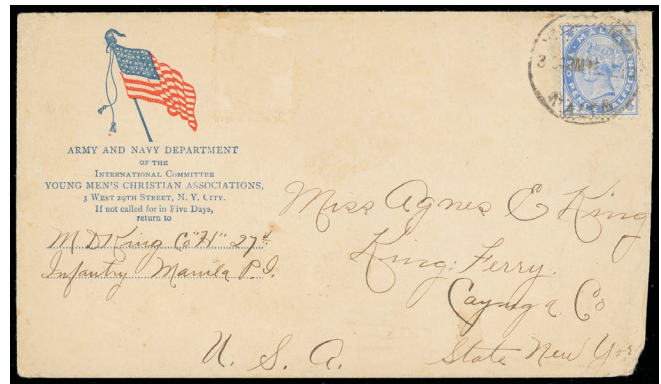 ARMY AND NAVY DEPARTMENT
OF THE
INTERNATIONAL COMMITTEE
YOUNG MEN'S CHRISTIAN ASSOCIATIONS,
3 WEST 29TH STREET, N. Y. CITY.
If not called for in Five Days,
return to
M D King Co "H" 27th
Infantry Manila P. I.
MALTA
MALTA
Miss Agnes E King
King: Ferry.
Cayuga Co
State New York
U. S. A.